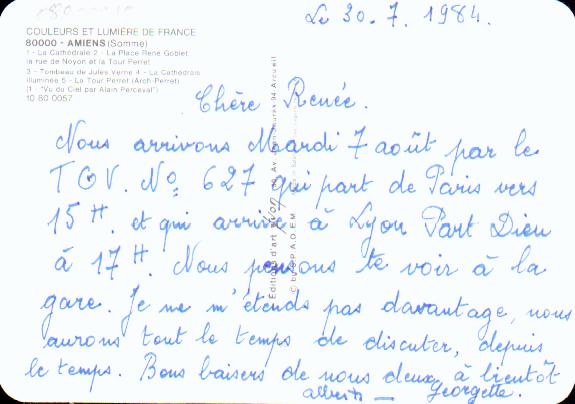 COULEURS ET LUMIÈRE DE FRANCE
80000 - AMIENS (Somme)
1 - La Cathédrale 2 - La Place René Goblet
la rue de Noyon et la Tour Perret
3 - Tombeau de Jules Verne 4 - La Cathédrale
illuminée 5 - La Tour Perret (Arch-Perret)
(1 - "Vu du Ciel par Alain Perceval")
10 80 0057
Le 30.7.1984.
Chère Renée.
Nous arrivons Mardi 7 août par le
TGV. No 627 qui part de Paris vers
15 H. et qui arrive à Lyon Part Dieu
à 17 H. Nous pensons te voir à la
gare. Je ne m'étends pas davantage, nous
aurons tout le temps de discuter, depuis
le temps. Bons baisers de nous deux, à bientôt
Albert — Georgette.
Editions d'art yvon, Av. Arcueil